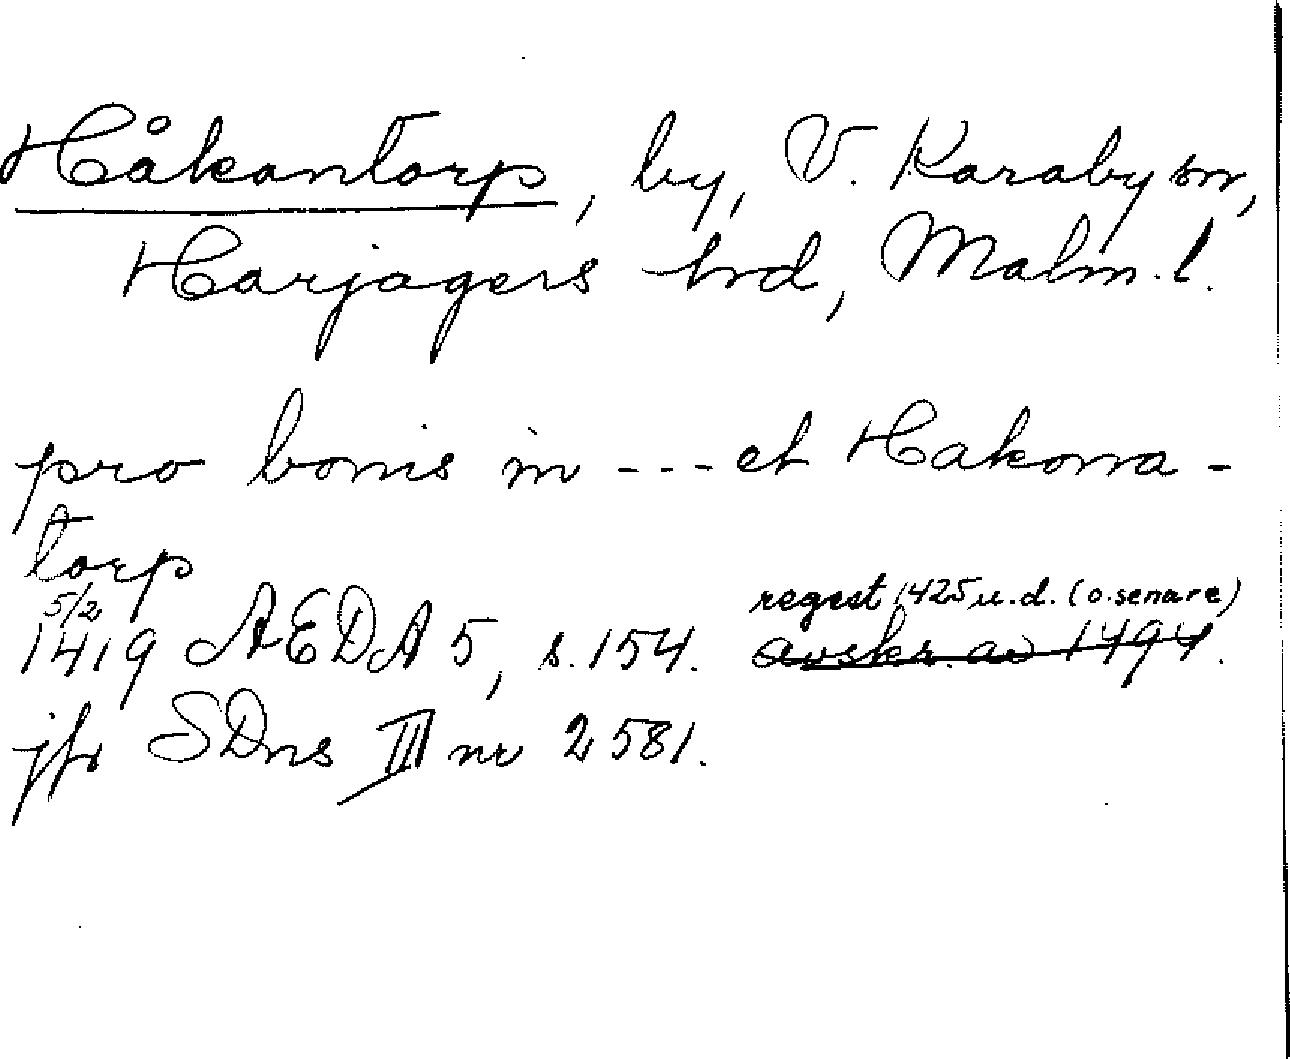 Håkantorp, by, V. Karaby sn,
Harjagers hrd, Malm. l.
pro bonis in --- et Hakona-
torp
5/2 regest 1425 u.d. (o. senare)
1419 AEDA 5, s. 154. avskr. av 1494.
jfr SDns III nr 2581.